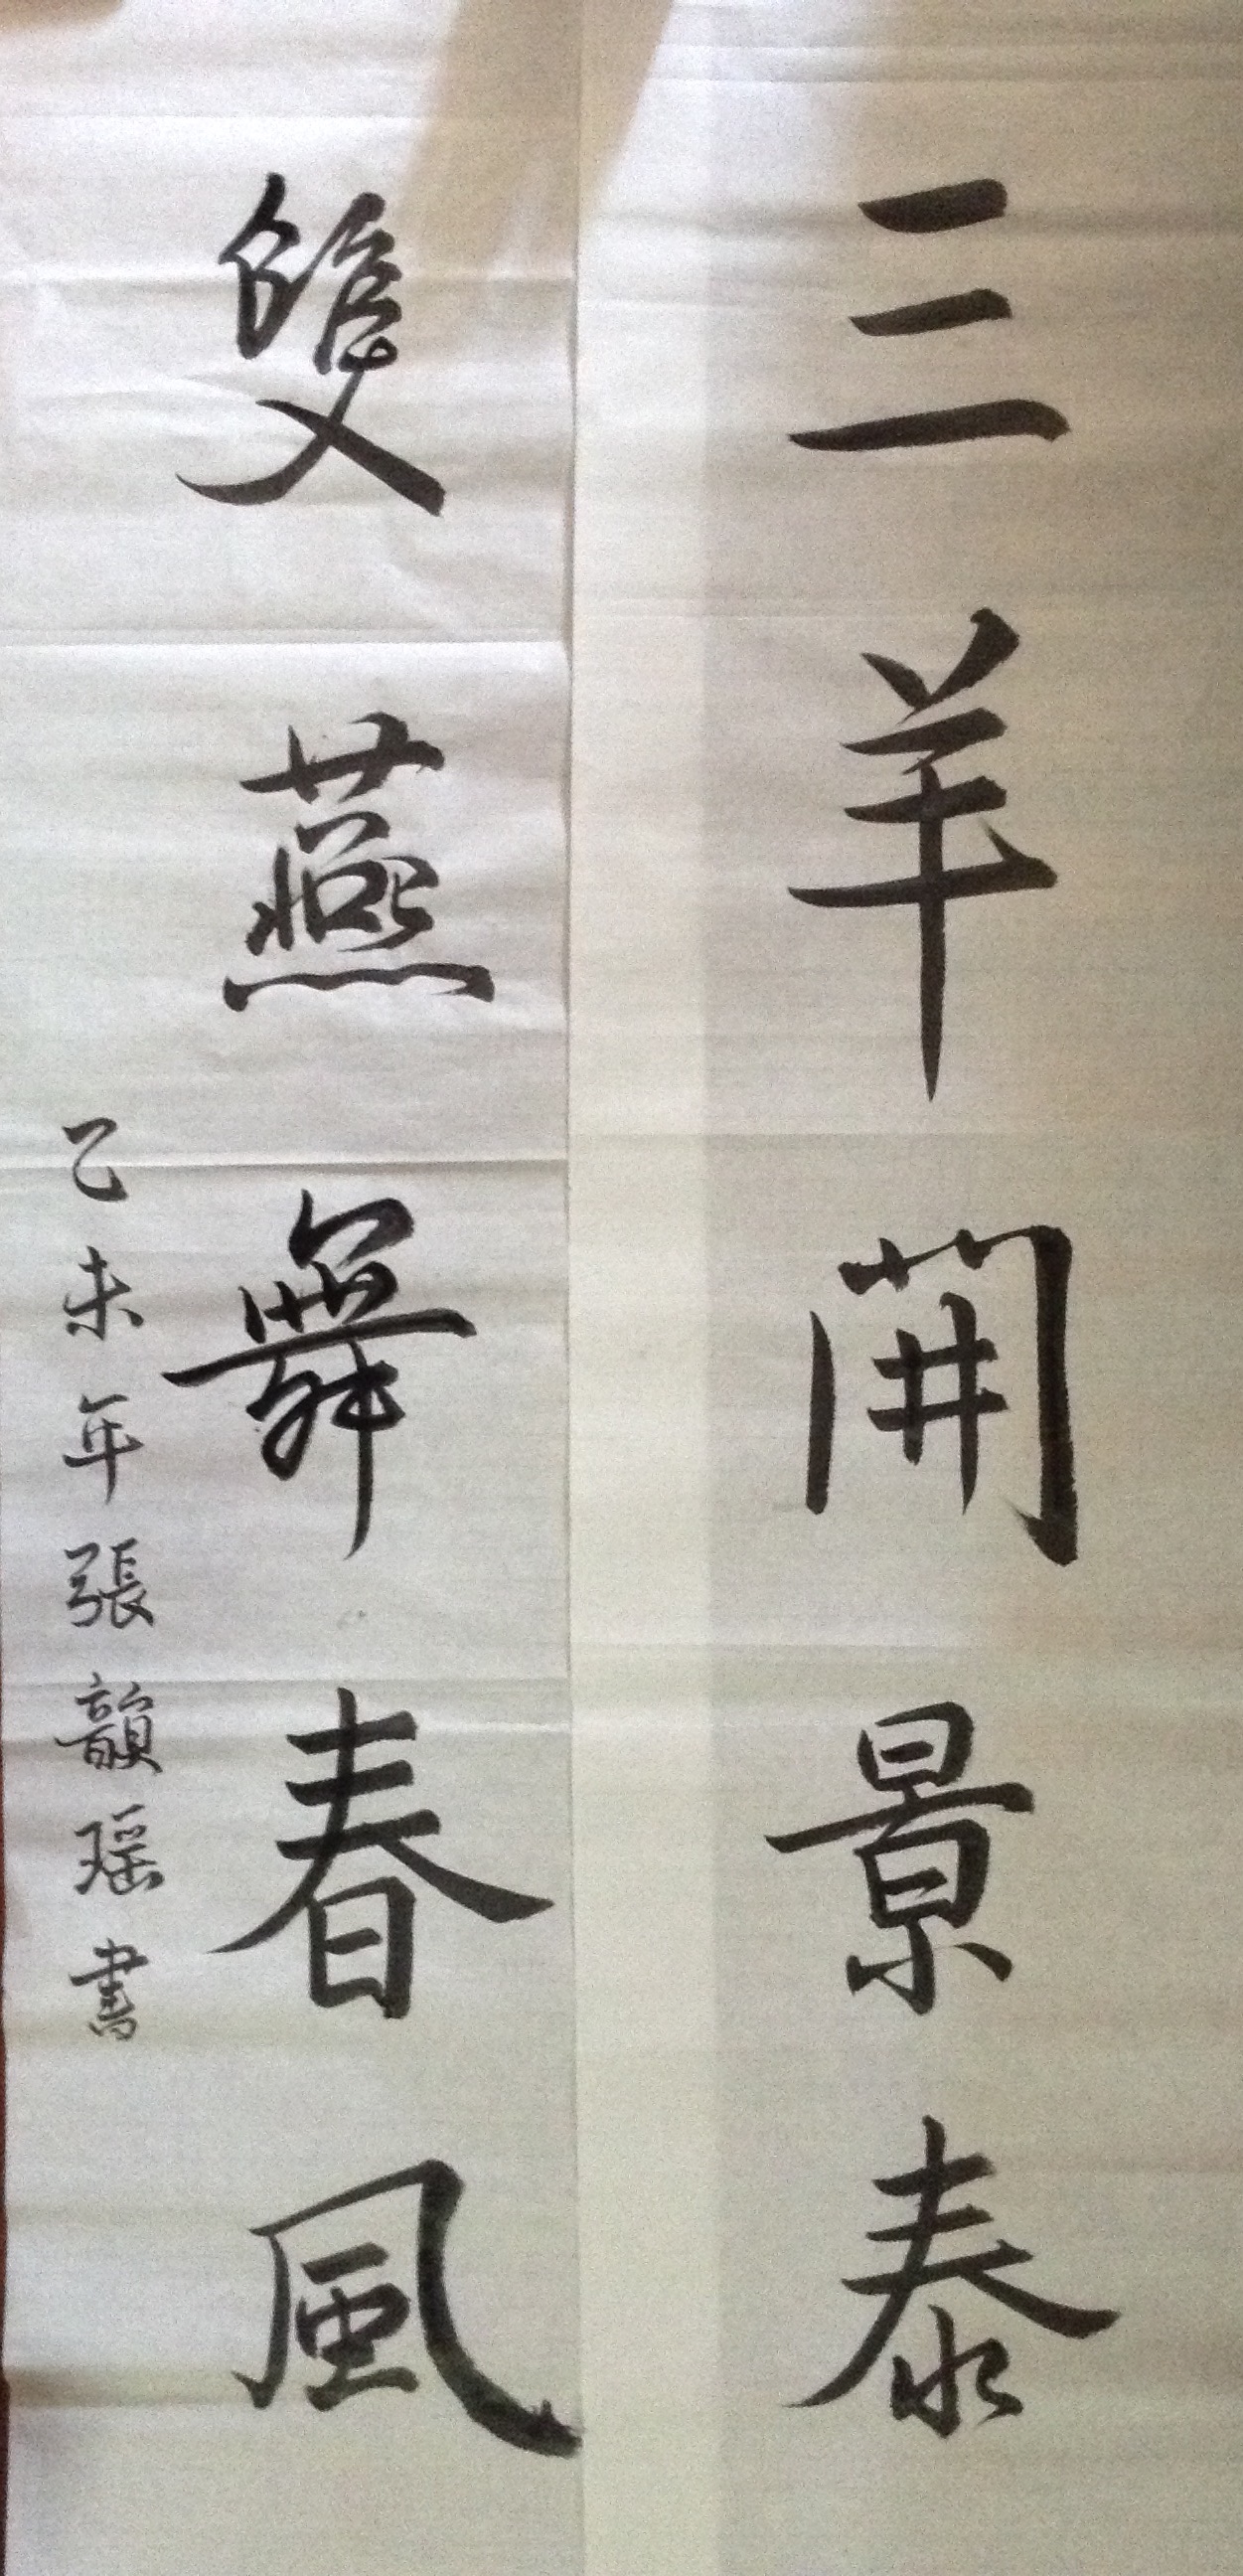 三羊開景泰
雙燕舞春風
乙未年張韻瑶書